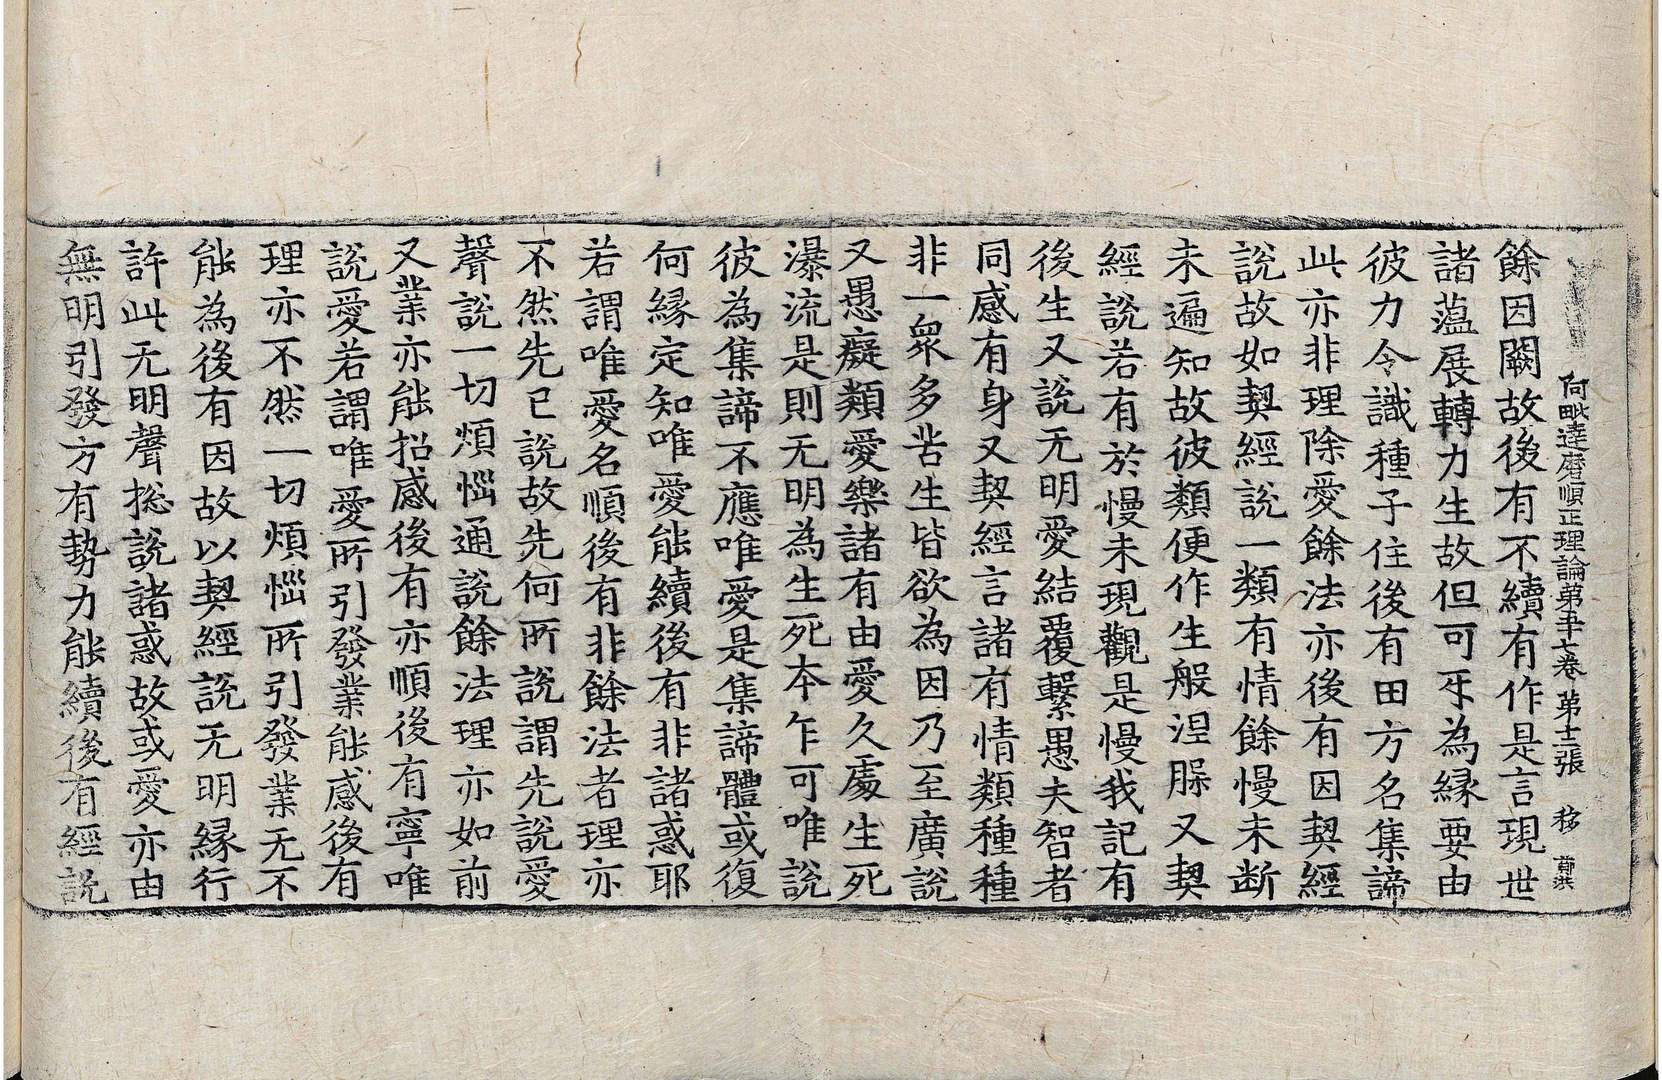 阿毗達磨順正理論第五十七卷 第十二張 移 鄭洪
餘因闕故後有不續有作是言現世
諸蕴展轉力生故但可牙為縁要由
彼力令識種子住後有田方名集諦
此亦非理除愛餘法亦後有因契經
說故如契經說一類有情餘慢未断
未遍知故彼類便作生般涅脲又契
經說若有於慢未現觀是慢我記有
後生又說无明愛結覆繫愚夫智者
同感有身又契經言諸有情類種種
非一衆多苦生皆欲為因乃至廣說
又愚癡類愛樂諸有由愛久處生死
瀑流是則无明為生死本乍可唯說
彼為集諦不應唯愛是集諦體或復
何縁定知唯愛能續後有非諸惑耶
若謂唯愛名順後有非餘法者理亦
不然先已說故先何所說謂先說愛
聲說一切煩惱通說餘法理亦如前
又業亦能招感後有亦順後有寧唯
說愛若謂唯愛所引發業能感後有
理亦不然一切煩惱所引發業无不
能為後有因故以契經說无明縁行
許此无明聲捴說諸惑故或愛亦由
無明引發方有勢力能續後有經說